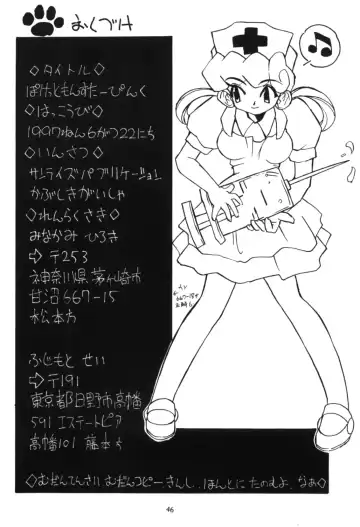 おくづけ
◇タイトル◇
ぽけっともんすたーぴんく
◇はっこうび◇
1997ねん6がつ22にち
◇いんさつ◇
サンライズパブリケーション
かぶしきがいしゃ
◇れんらくさき◇
みなかみ ひろき
⇨〒253
神奈川県茅ヶ崎市
甘沼667-15
松本方
ふじもと せい
⇨〒191
東京都日野市高幡
591 エステートピア
高幡101 藤本方
◇むだんてんさい むだんコピーきんし。ほんとにたのむよ、なあ◇
46